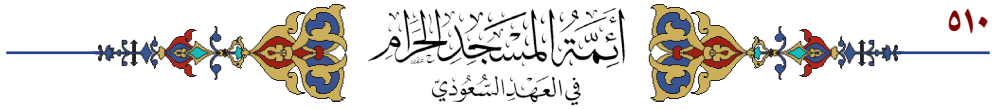 ٥١٠
أَئِمَّةُ المَسْجِدِ الحَرَامِ
في العَهْدِ السُّعُوْدِيّ